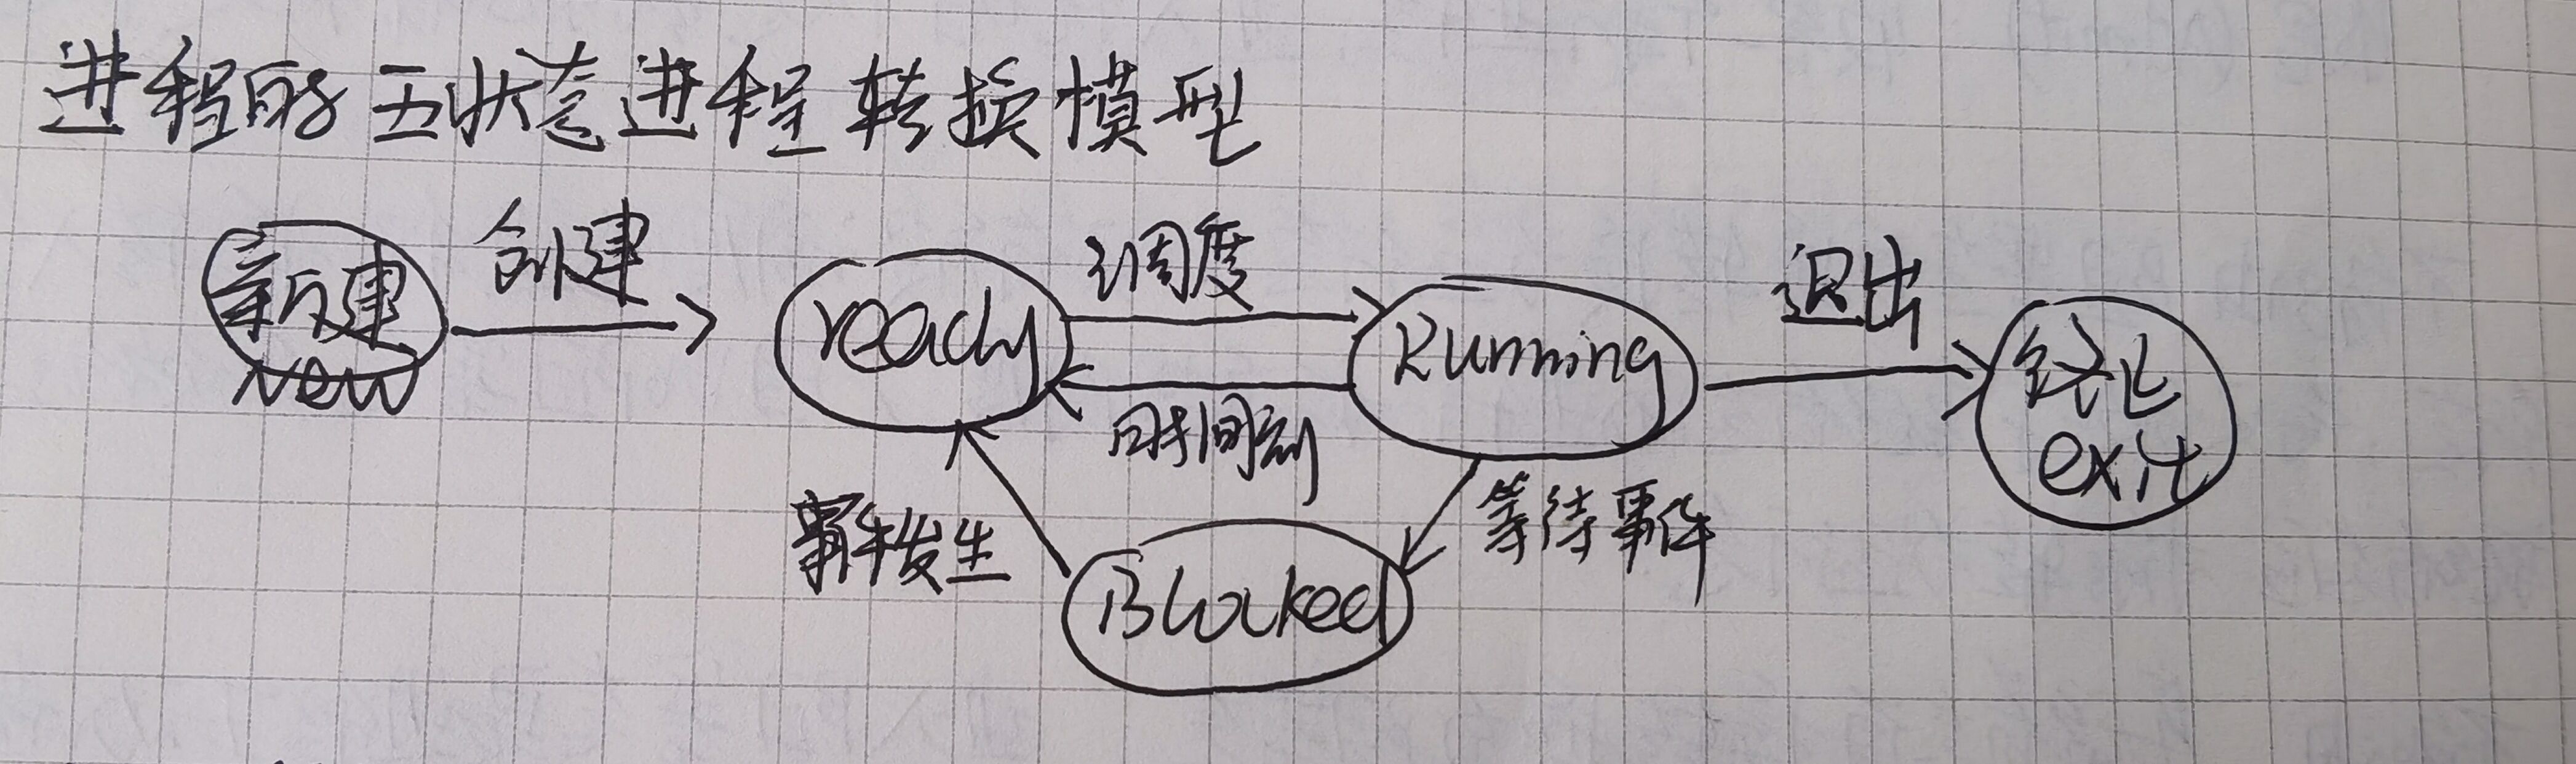 进程的五状态进程转换模型
新建
New
创建
ready
调度
时间到
Running
退出
终止
exit
事件发生
Blocked
等待事件